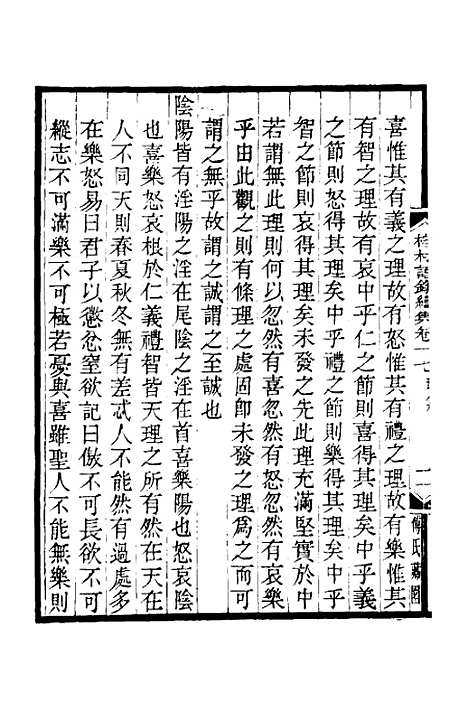 喜惟其有義之理故有怒惟其有禮之理故有樂惟其
有智之理故有哀中乎仁之節則喜得其理矣中乎義
之節則怒得其理矣中乎禮之節則樂得其理矣中乎
智之節則哀得其理矣未發之先此理充滿堅實於中
若謂無此理則何以忽然有喜忽然有怒忽然有哀忽然
乎由此觀之則有條理之處固即未發之理為之而可
謂之無乎故謂之誠謂之至誠也
陰陽皆有淫陽之淫在尾陰之淫在首喜樂陽也怒哀陰
也喜樂怒哀根於仁義禮智皆天理之所有然在天在
人不同天則春夏秋冬無有差忒人不能然有過處多
在樂怒易曰君子以懲忿窒欲記曰傲不可長欲不可
縱志不可滿樂不可極若憂與喜雖聖人不能無樂則
榕村語錄續集卷十七
傅氏藏園